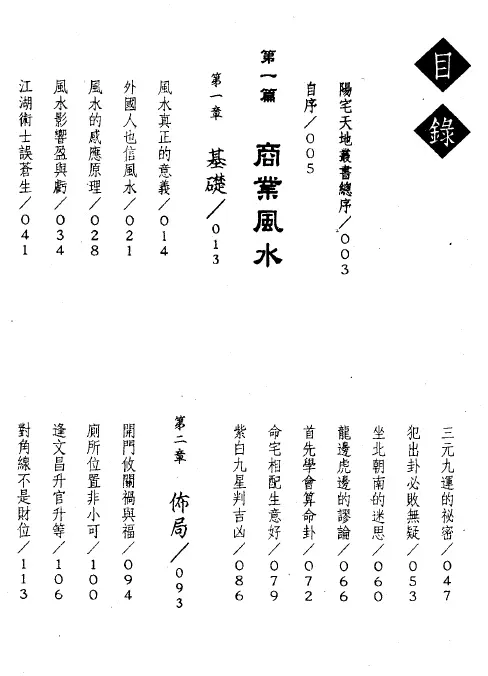 目錄
陽宅天地叢書總序／003
自序／005
第一篇 商業風水
第一章 基礎／013
風水真正的意義／014
外國人也信風水／021
風水的感應原理／028
風水影響盈與虧／034
江湖術士誤蒼生／041
三元九運的祕密／047
犯出卦必敗無疑／053
坐北朝南的迷思／060
龍邊虎邊的謬論／066
首先學會算命卦／072
命宅相配生意好／079
紫白九星判吉凶／086
第二章 佈局／093
開門攸關禍與福／094
廁所位置非小可／100
逢文昌升官升等／106
對角線不是財位／113